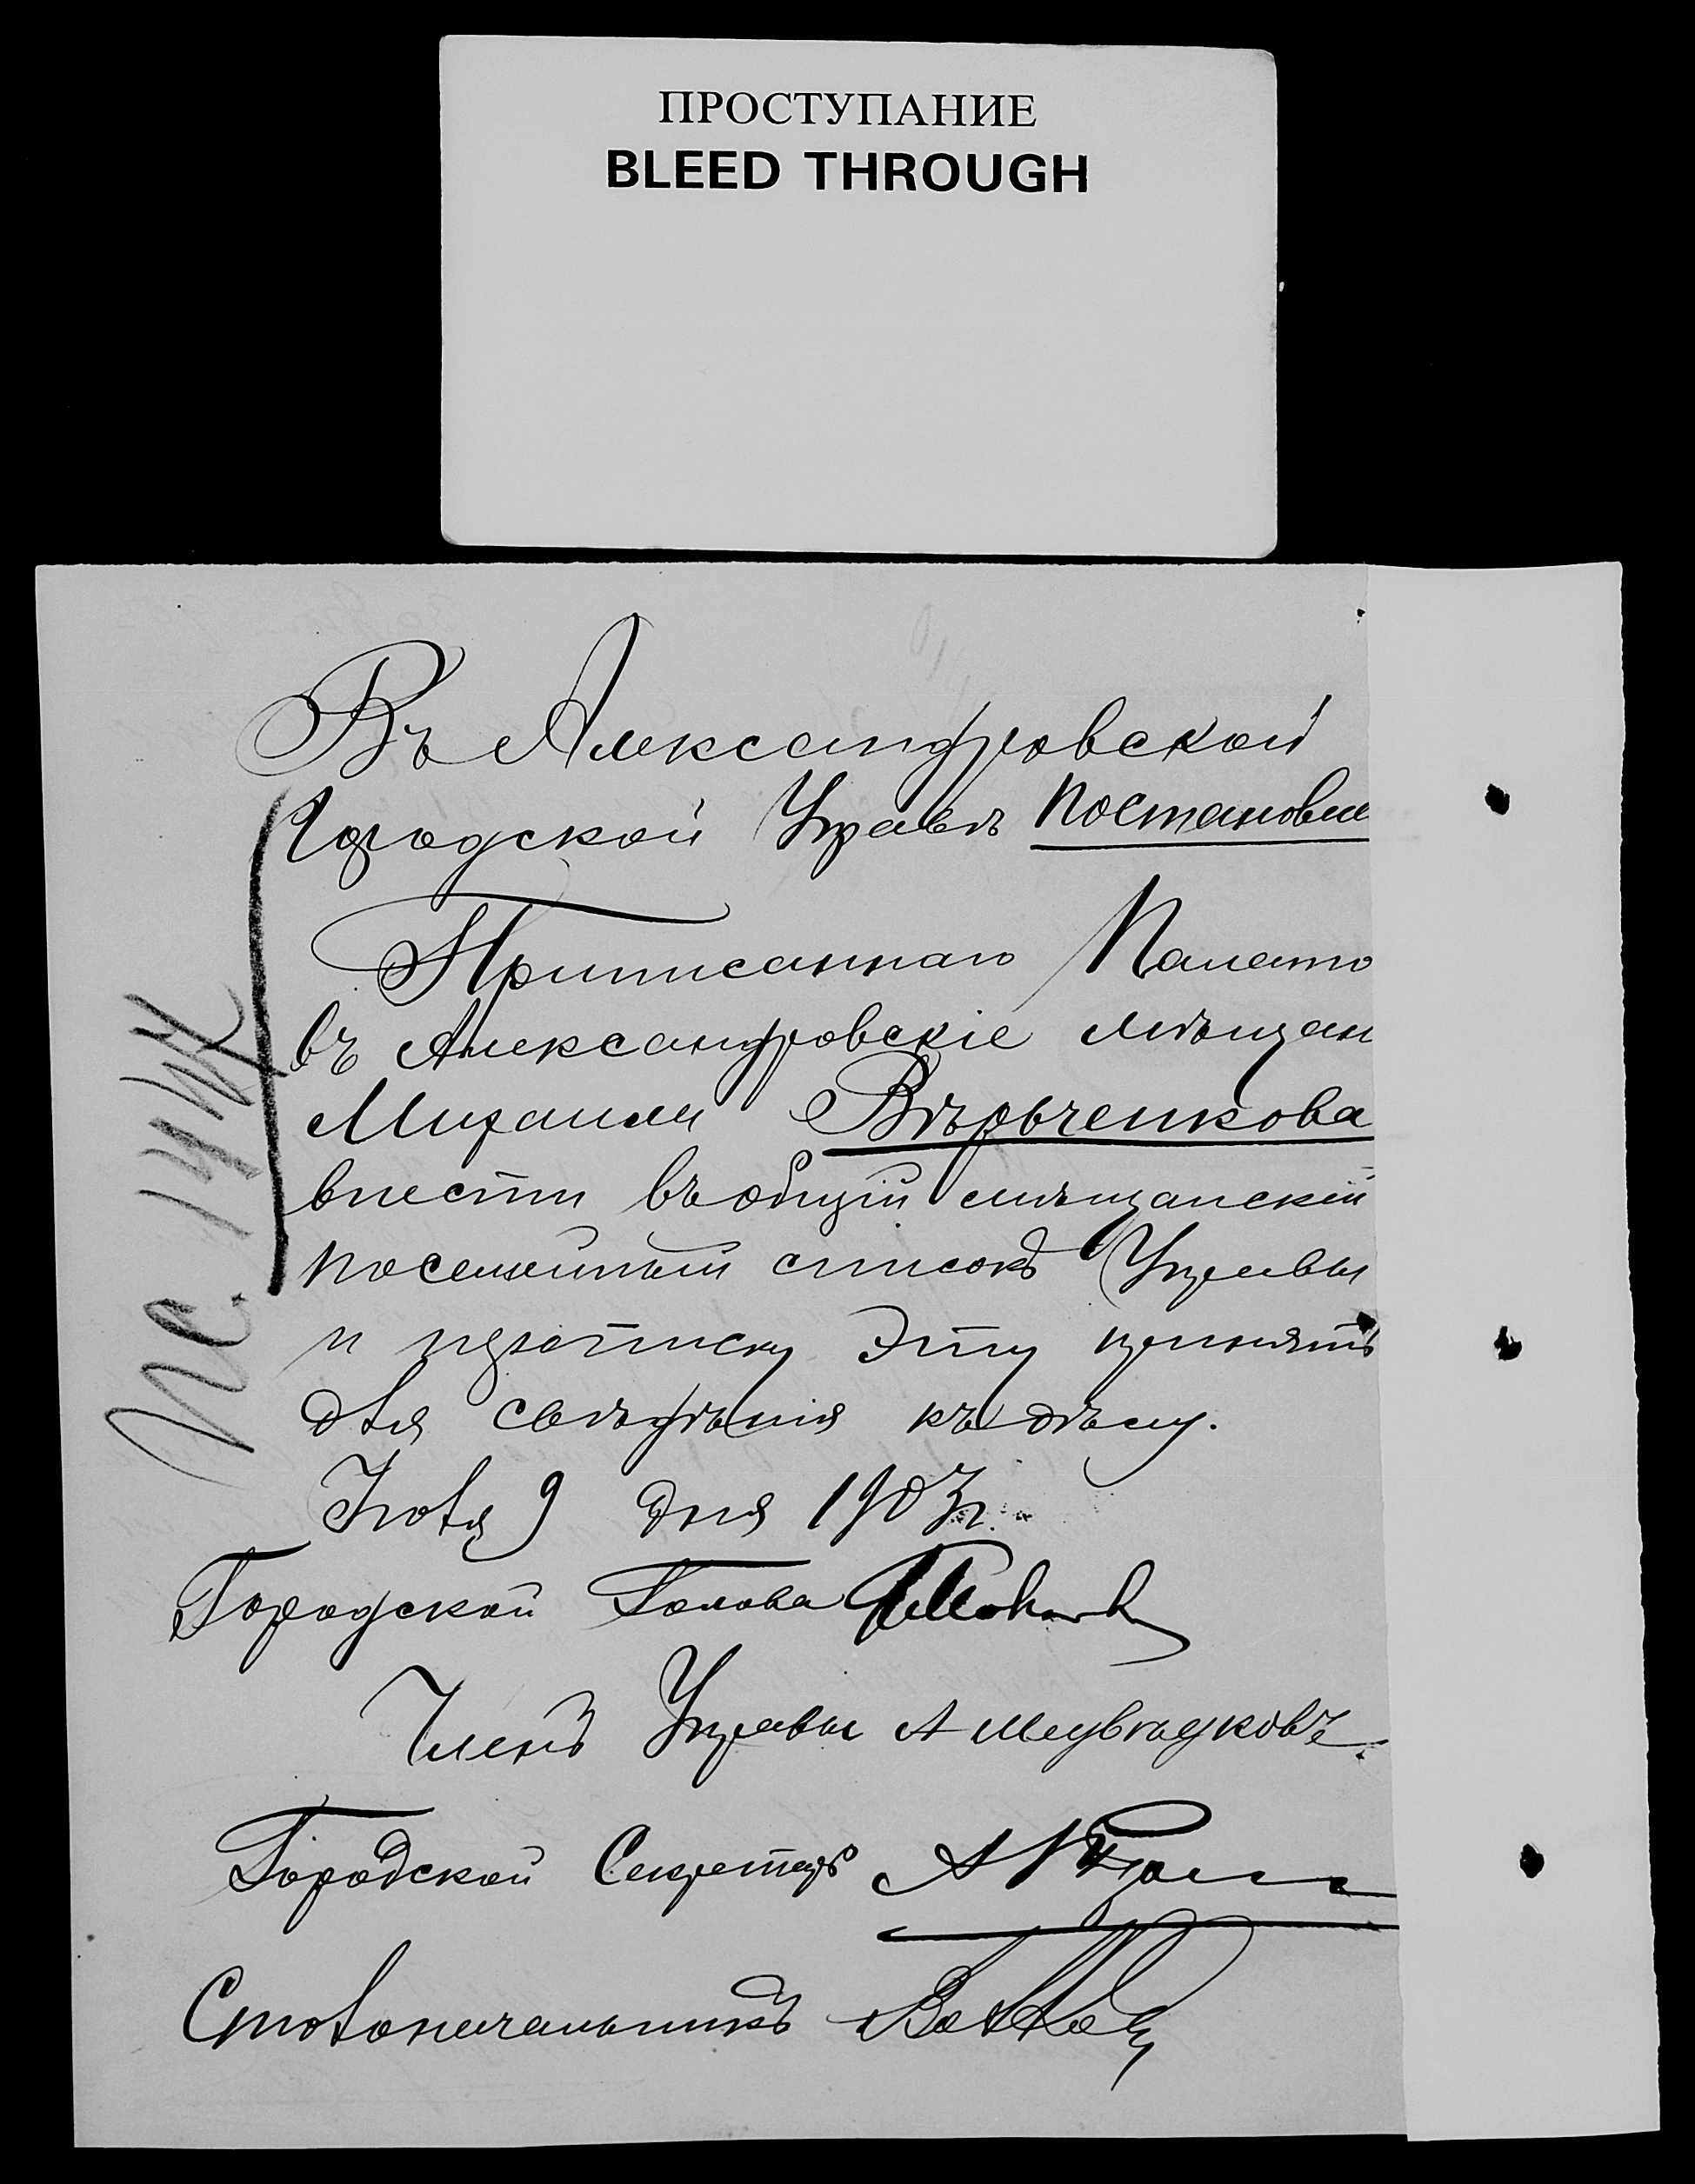 ПРОСТУПАНИЕ
BLEED THROUGH
Въ Александровской
Городской Управѣ Постановле
Приписаннаго Палато
въ Александровскіе мѣщан
Михаила Вѣрвченкова
внести въ общій мѣщанскій
посемейный списокъ Управы
и прописку эту принять
для свѣдѣнія къ дѣлу.
Іюля 9 дня 1903 г.
Городской Голова
Членъ Управы А Медвѣдковъ
Городской Секретарь
Столоначальникъ Волков